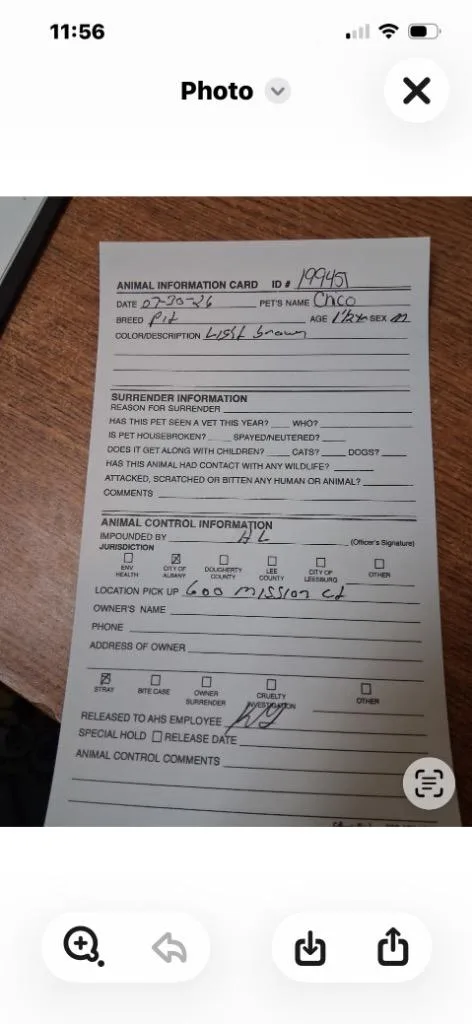 11:56
Photo
ANIMAL INFORMATION CARD ID # 199451
DATE 07-30-26 PET'S NAME Chico
BREED Pit AGE 1 1/2 Y SEX M
COLOR/DESCRIPTION Light brown
SURRENDER INFORMATION
REASON FOR SURRENDER
HAS THIS PET SEEN A VET THIS YEAR? WHO?
IS PET HOUSEBROKEN? SPAYED/NEUTERED?
DOES IT GET ALONG WITH CHILDREN? CATS? DOGS?
HAS THIS ANIMAL HAD CONTACT WITH ANY WILDLIFE?
ATTACKED, SCRATCHED OR BITTEN ANY HUMAN OR ANIMAL?
COMMENTS
ANIMAL CONTROL INFORMATION
IMPOUNDED BY HL (Officer's Signature)
JURISDICTION
ENV HEALTH CITY OF ALBANY DOUGHERTY COUNTY LEE COUNTY CITY OF LEESBURG OTHER
LOCATION PICK UP 600 Mission ct
OWNER'S NAME
PHONE
ADDRESS OF OWNER
STRAY BITE CASE OWNER SURRENDER CRUELTY INVESTIGATION OTHER
RELEASED TO AHS EMPLOYEE
SPECIAL HOLD RELEASE DATE
ANIMAL CONTROL COMMENTS